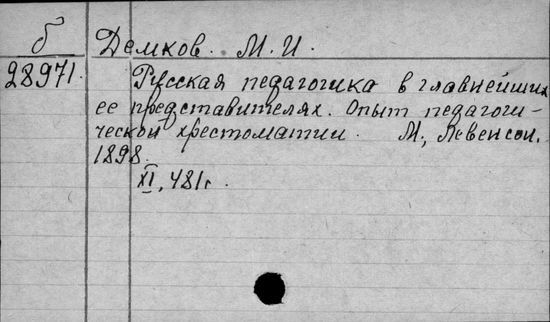 б Демков. М. И.
28971. Русская педагогика в главнейших
ее представителях. Опыт педагоги-
ческой хрестоматии. М., Левенсон,
1898.
XI, 481 г.